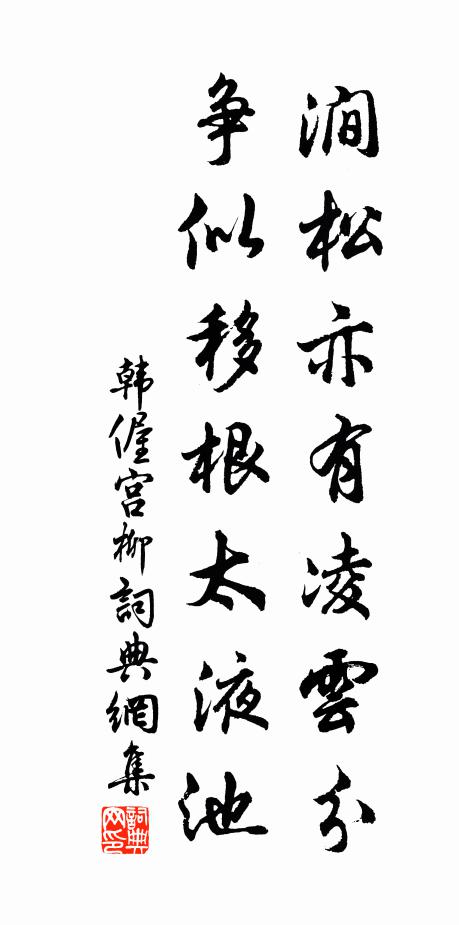 澗松亦有凌雲分
爭似移根太液池
韩偓宫柳詞典網集
詞典网印